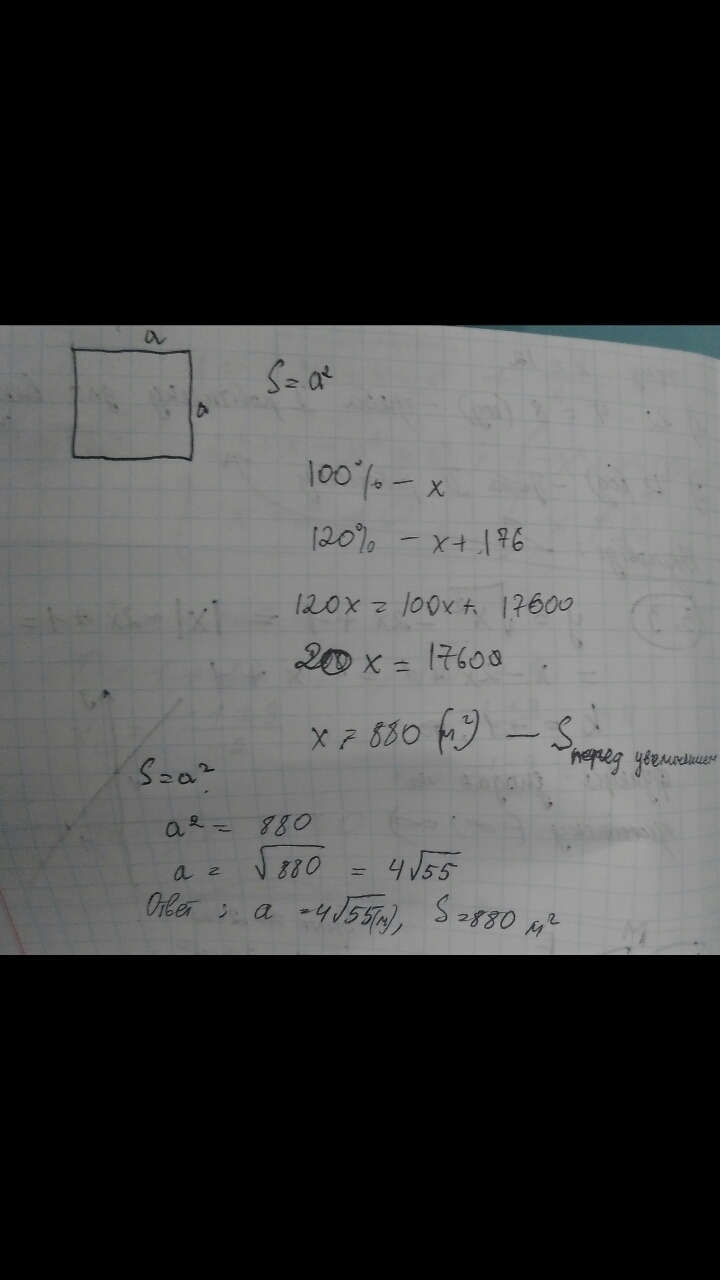 a
a
S = a²
100% – x
120% – x + 176
120x = 100x + 17600
x = 17600
x = 880 (м²) — S перед увеличением
S = a²
a² = 880
a = √880 = 4√55
Ответ: a = 4√55(м), S = 880 м²